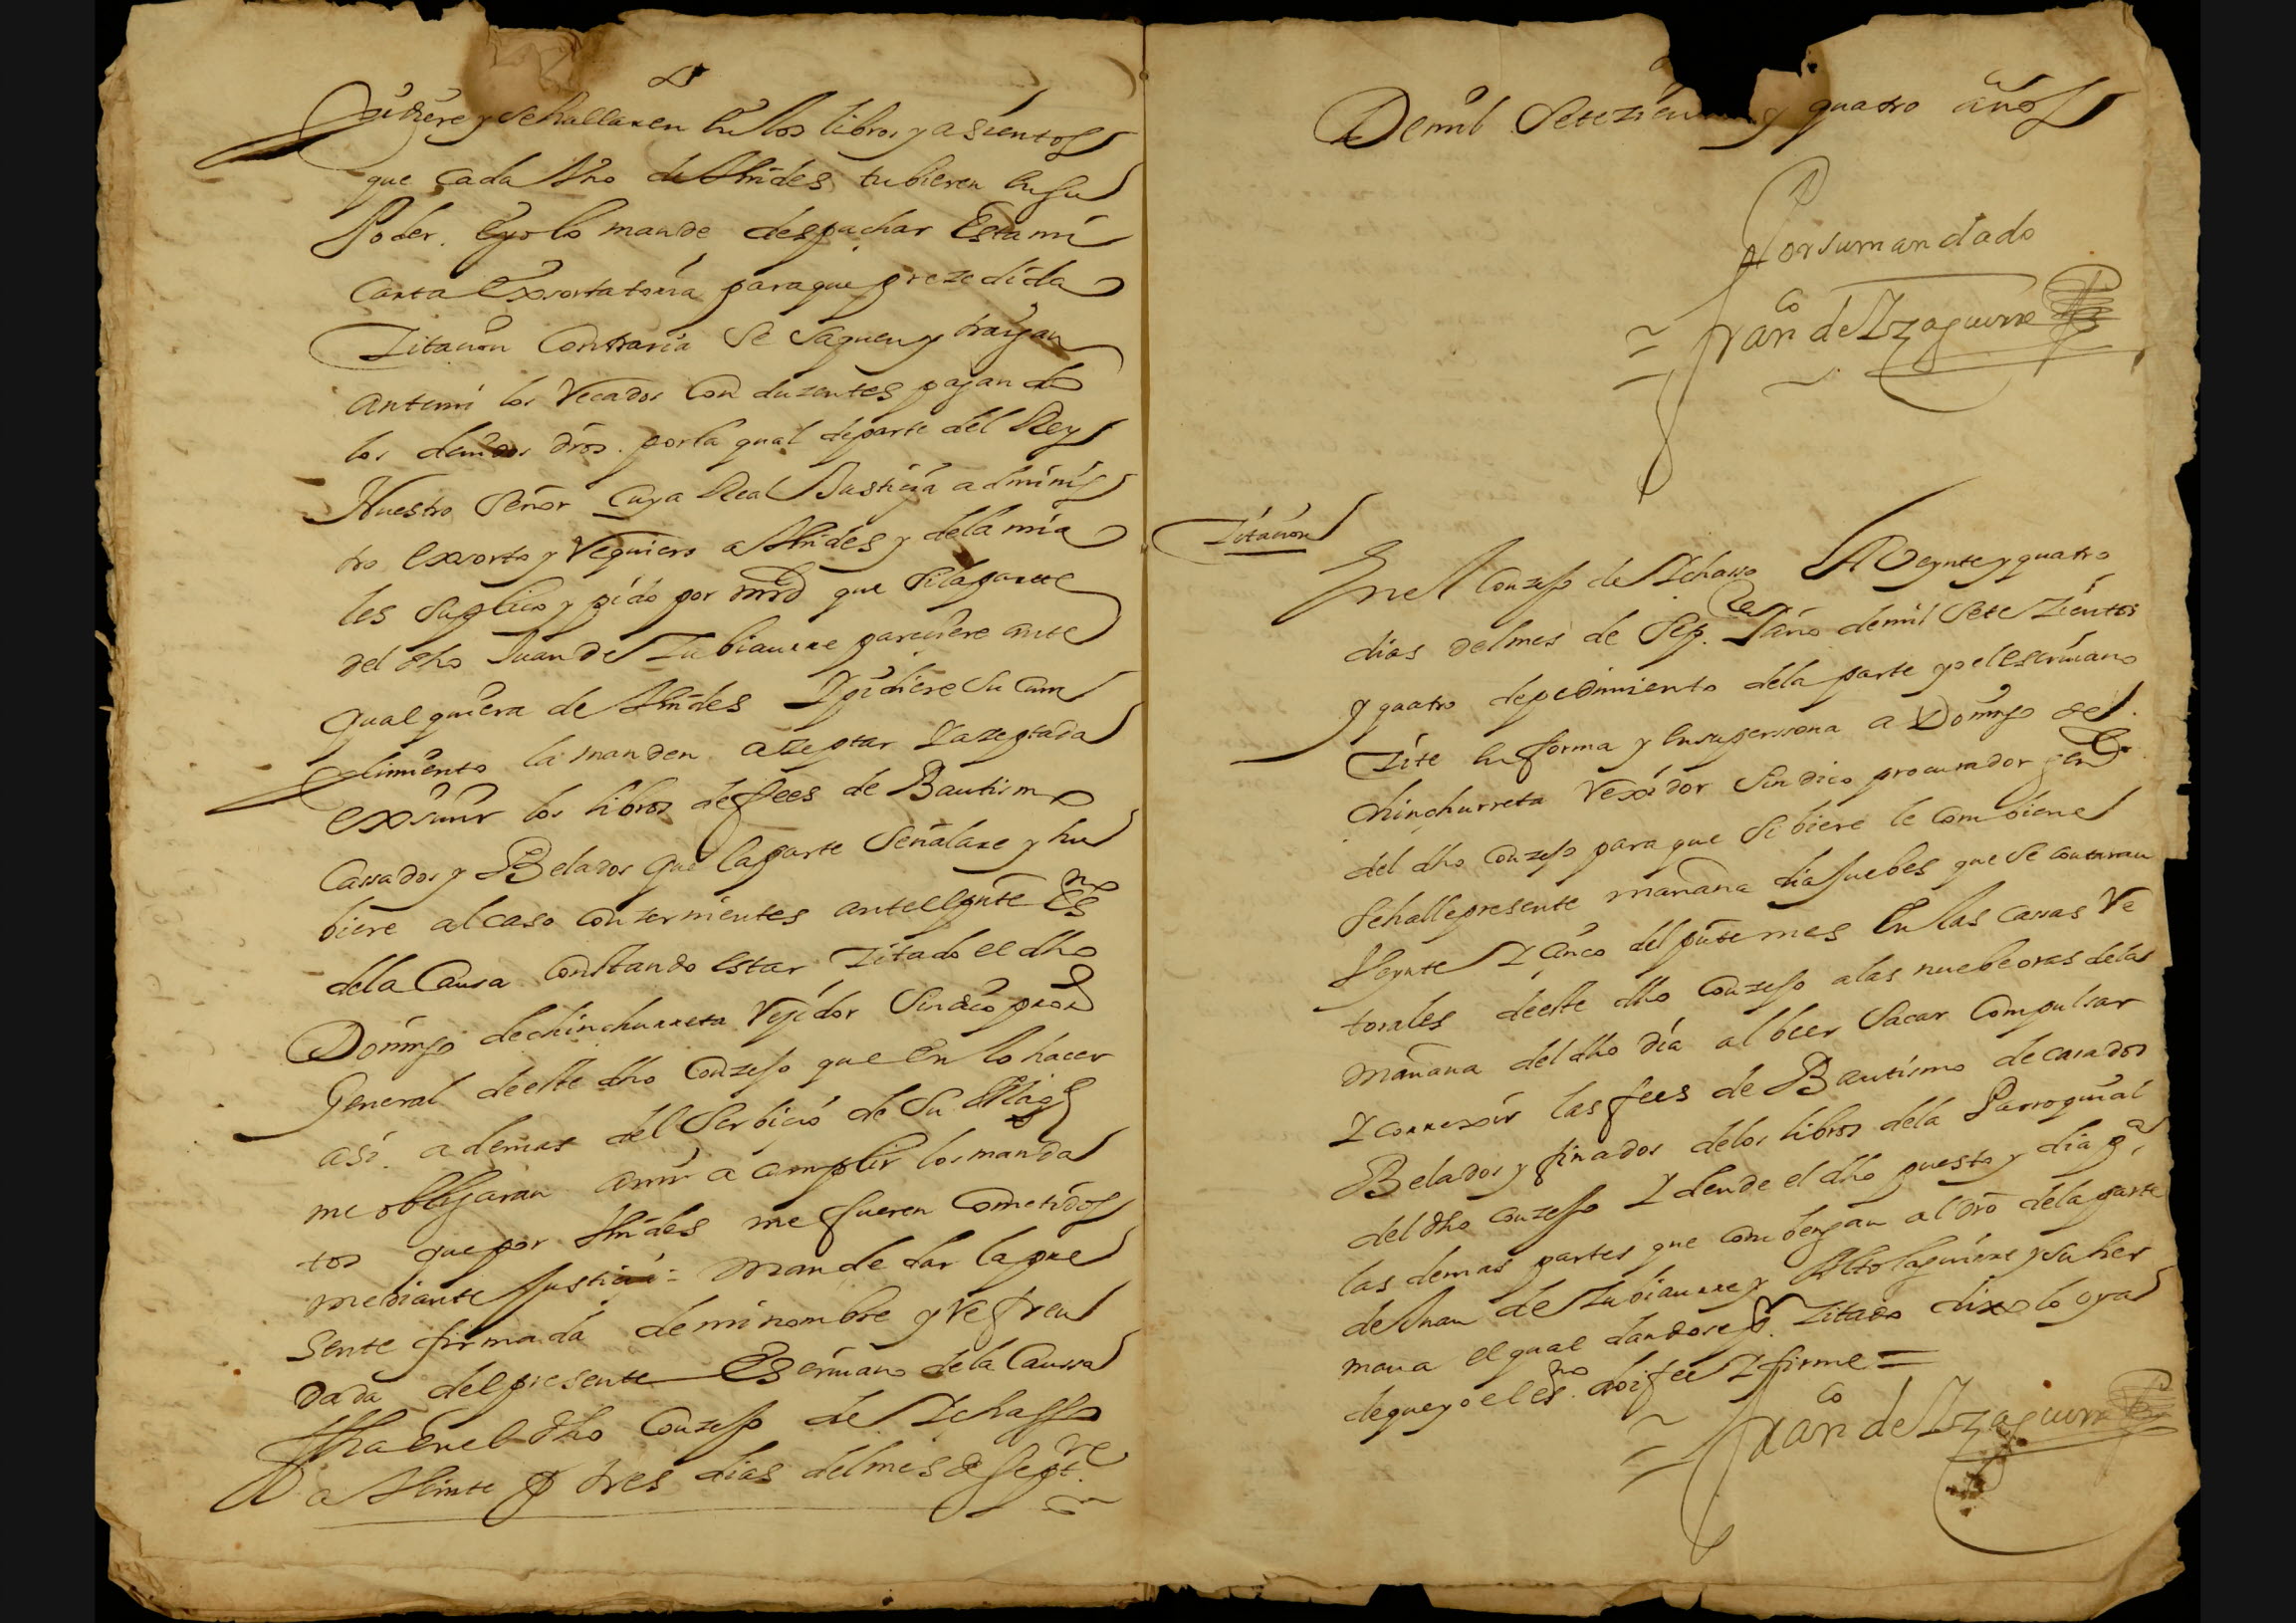 pidiere y se hallaren en los libros y asientos
que cada Vno de Vmdes tubieren en su
Poder. Eyo lo mande despachar Esta mi
Carta Exsortatoria para que prezedida
Zitacion Contraria se saquen y traigan
antemi los Recados Conduzentes pagando
los deuidos dros. por la qual de parte del Rey
Nuestro Señor Cuya Real Justicia adminis
tro exsorto y Requiero a Vmdes y de la mia
les suplico y pido por mrd que si la parte
del dho Juan de Zubiaurre pareciere ante
qualquiera de Vmdes I pidiere su cum
plimiento la manden azeptar I azeptada
exsiuir los libros de fees de Bautismo
Cassados y Belados que la parte señalare y hu
biere al caso conzernientes ante el pnte Esno
de la Causa Constando estar Zitado el dho
Domingo de chinchurreta Rejidor Sindico pror
General de este dho Conzejo que en lo hacer
asi. ademas del Serbicio de Su Magd
me obligaran a mi a cumplir los manda
tos que por Vmdes me fueren Cometidos
mediante Justicia = Mande dar la pre
sente firmada de mi nombre y Refren
dada del presente Escriuano de la Caussa
Fha en el dho Conzejo de Ichasso
a Veinte y tres dias del mes de Septre
De mil Setezien y quatro años
Por su mandado
Franco de Izaguirre
Zitacion
En el Conzejo de Ichasso A Veynte y quatro
dias del mes de Sepre. año de mil Sete Zientos
y quatro de pedimiento de la parte yo el escriuano
Zite en forma y en su perssona a Domingo de
chinchurreta Rexidor Sindico procurador genl.
del dho conzejo para que si biere le combiene
se halle presente mañana dia Juebes que se contaran
Veynte I cinco del pnte mes En las cassas Re
torales de este dho Conzejo a las nuebe oras de la
mañana del dho dia al beer Sacar Compulsar
I correxir las fees de Bautismo de casados
Belados y finados de los libros de la Parroquial
del dho conzejo I dende el dho puesto y dia pa
las demas partes que combengan al dro de la parte
de Juan de Zubiaurre y Altolaguirre y su her
mana el qual dandose pr. Zitado dixo lo oya
de que yo el esno. doi fee I firme =
Franco de Izaguirre